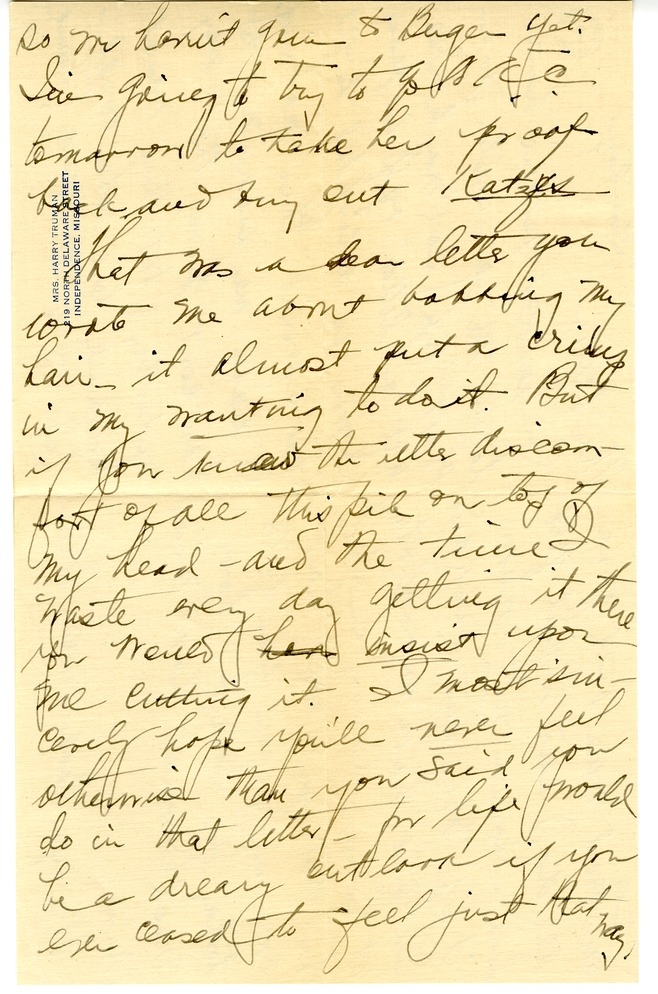 so we haven't gone to Berger yet.
I'm going to try to go to K.C.
tomorrow to take her proof
back and try out Katz's
MRS. HARRY TRUMAN
219 NORTH DELAWARE STREET
INDEPENDENCE, MISSOURI
That was a dear letter you
wrote me about bobbing my
hair_ it almost put a crimp
in my wanting to do it. But
if you knew the utter discom-
fort of all this pile on top of
my head - and the time I
waste every day getting it there
you would insist upon
me cutting it. I most sin-
cerely hope you'll never feel
otherwise than you said you
do in that letter - for life would
be a dreary outlook if you
ever ceased to feel just that
way.